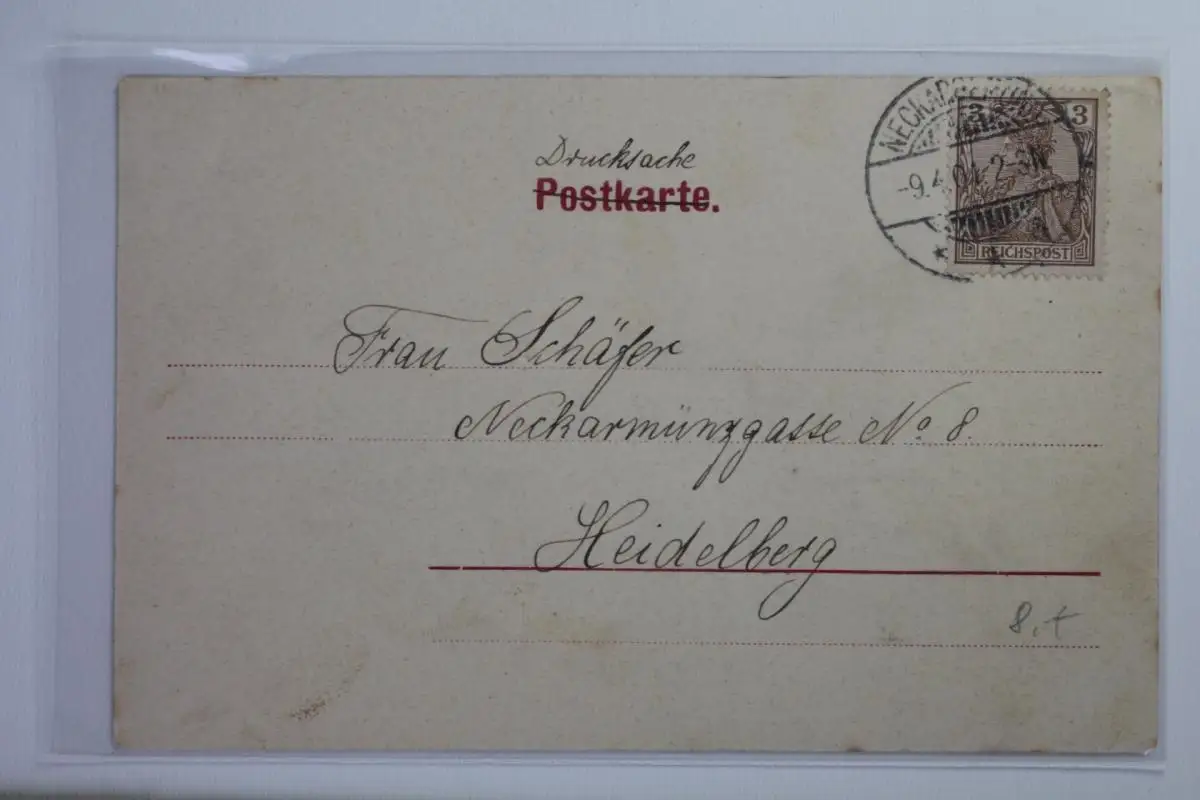 Drucksache
Postkarte.
3 3
-9.4.04. 2-3N
REICHSPOST
Frau Schäfer
Neckarmünzgasse No 8.
Heidelberg
8.+